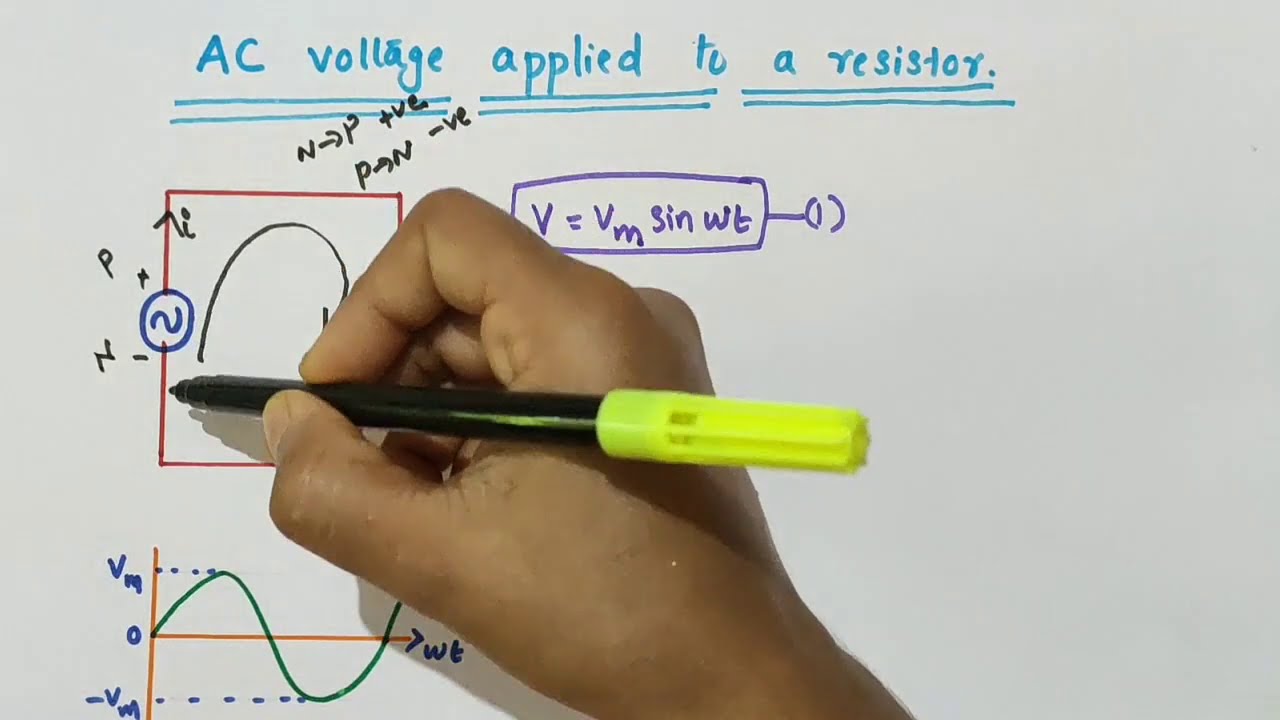 AC voltage applied to a resistor.
N→P +ve
P→N -ve
i
V = Vm sin wt —(1)
P +
N -
Vm
0
wt
-Vm